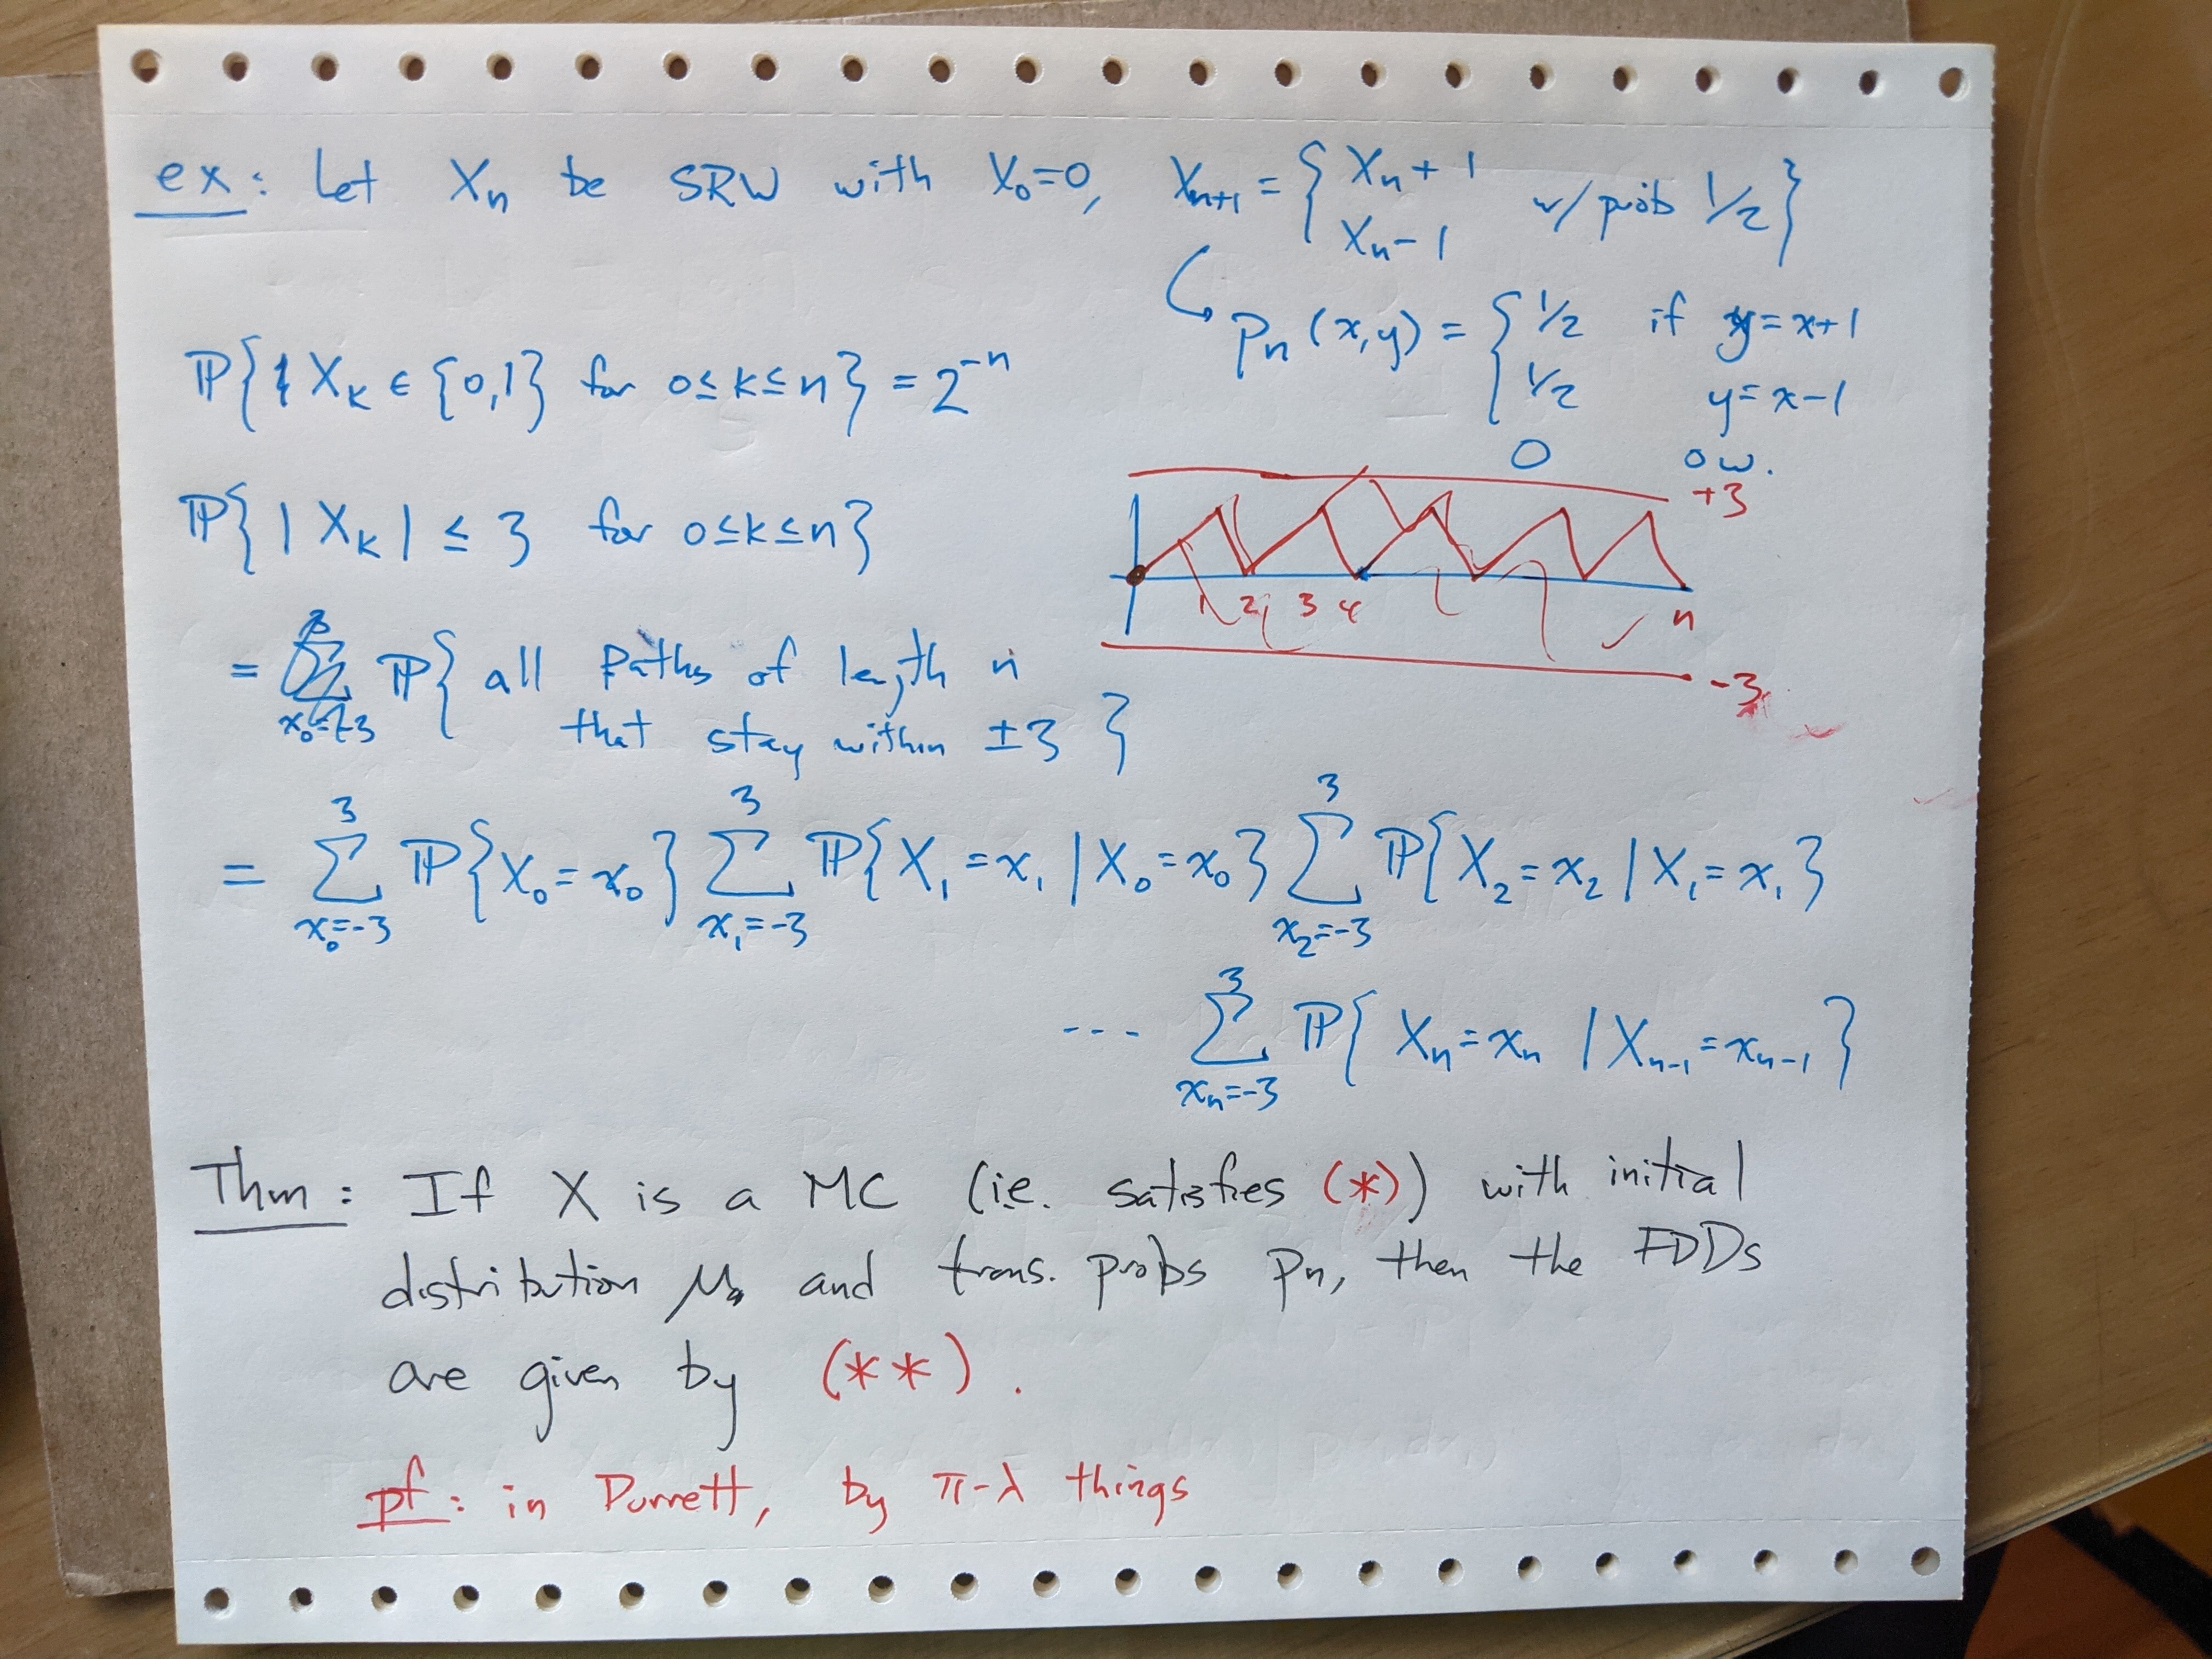 ex: Let Xₙ be SRW with X₀=0, Xₙ₊₁ = { Xₙ+1
Xₙ-1 w/ prob 1/2 }
pₙ(x,y) = { 1/2 if y=x+1
1/2 y=x-1
0 ow.
ℙ{ Xₖ ∈ {0,1} for 0≤k≤n} = 2⁻ⁿ
+3
1 2 3 4 n
-3
ℙ{ |Xₖ| ≤ 3 for 0≤k≤n}
= ℙ{ all Paths of length n
that stay within ±3 }
= ∑_{x₀=-3}^{3} ℙ{X₀=x₀} ∑_{x₁=-3}^{3} ℙ{X₁=x₁|X₀=x₀} ∑_{x₂=-3}^{3} ℙ{X₂=x₂|X₁=x₁}
--- ∑_{xₙ=-3}^{3} ℙ{ Xₙ=xₙ |Xₙ₋₁=xₙ₋₁}
Thm: If X is a MC (ie. satisfies (*)) with initial
distribution μ₀ and trans. probs pₙ, then the FDDs
are given by (**).
pf: in Durrett, by π-λ things